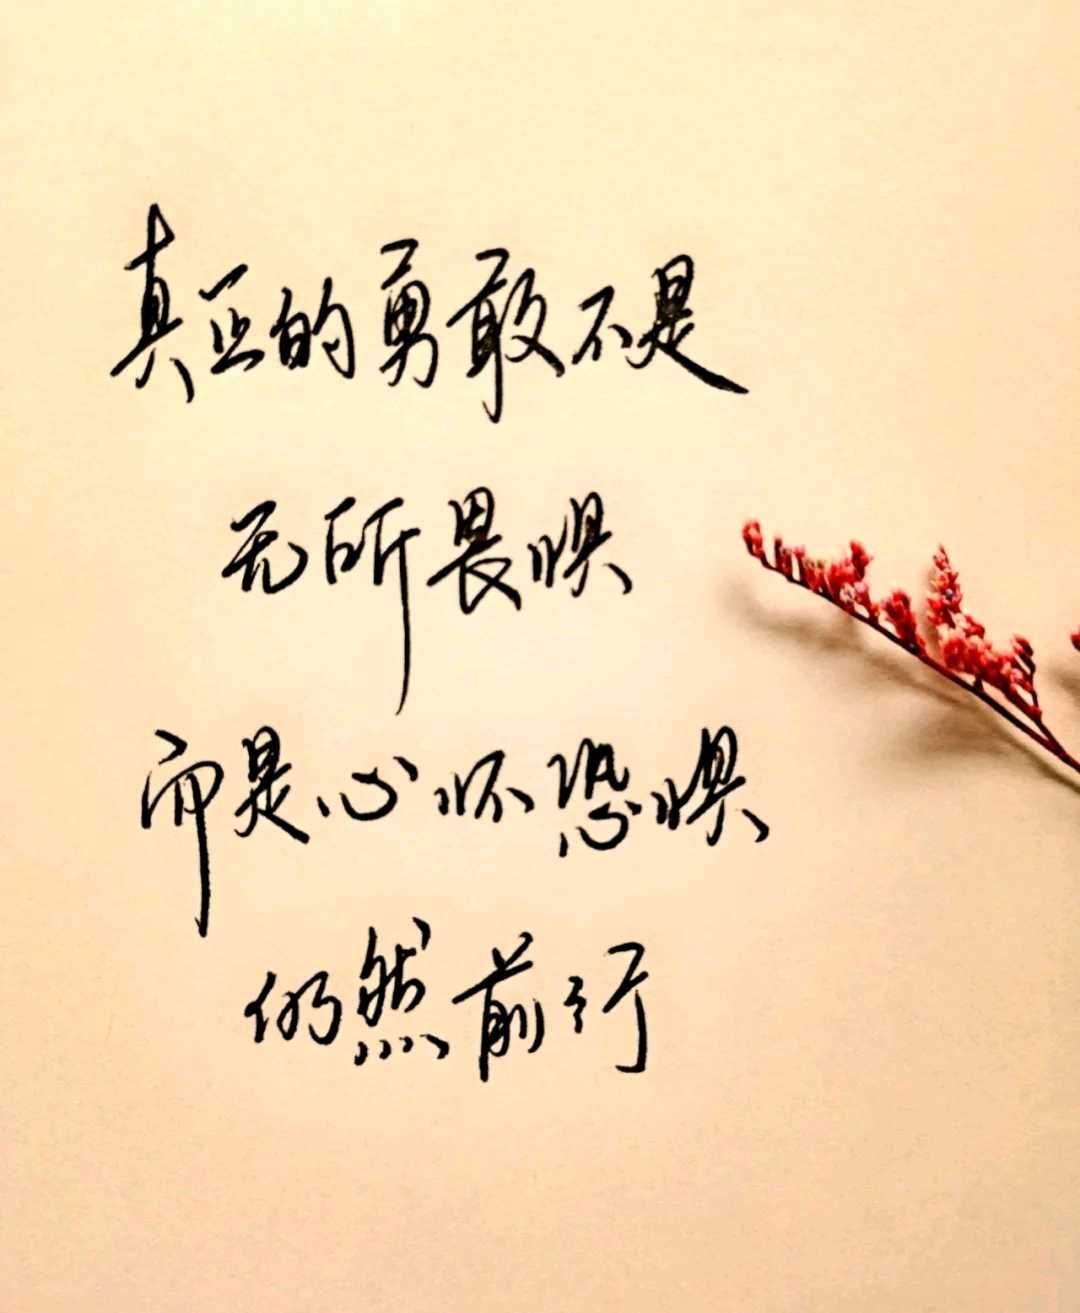 真正的勇敢不是
无所畏惧
而是心怀恐惧
仍然前行